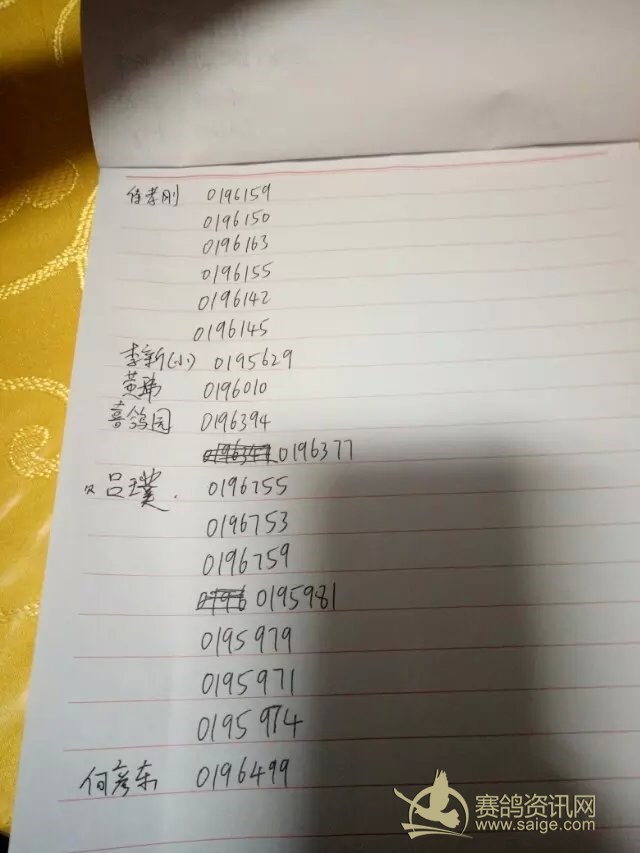 任孝刚 0196159
0196150
0196163
0196155
0196142
0196145
李新(小) 0195629
黄玮 0196010
喜鸽园 0196394
0196377
吕璞. 0196755
0196753
0196759
0196 0195981
0195979
0195971
0195974
何彦东 0196499
赛鸽资讯网
www.saige.com